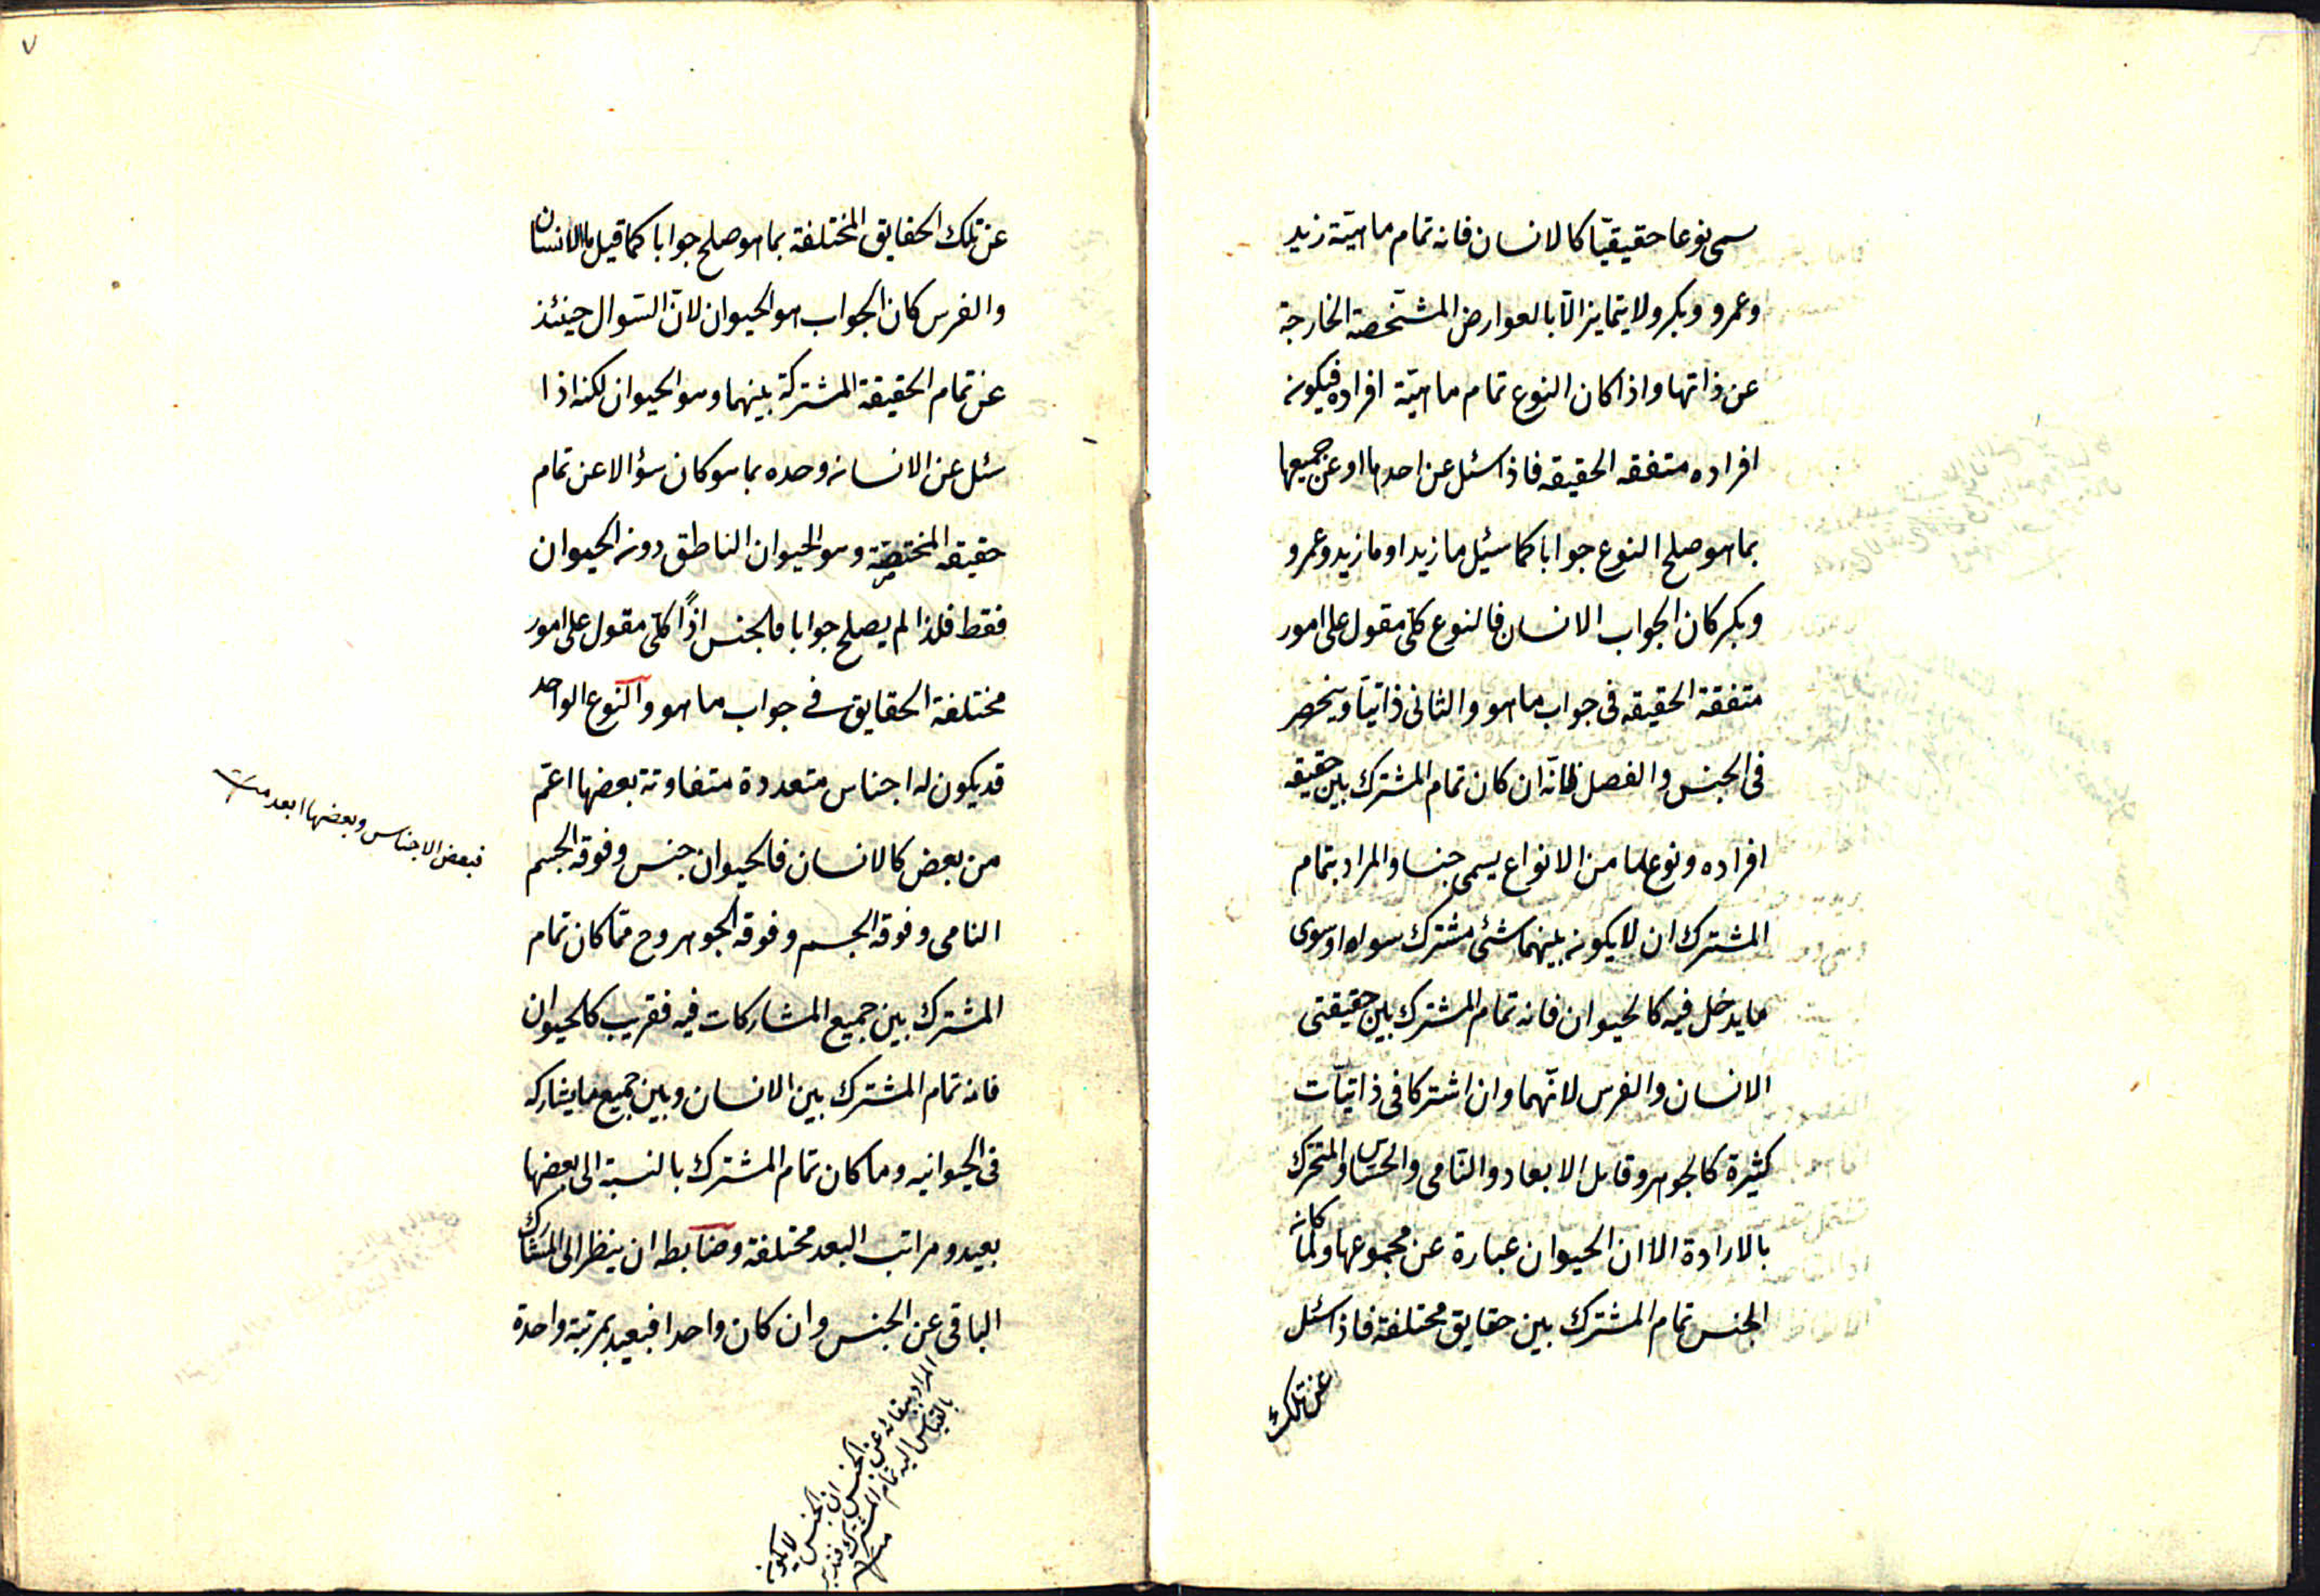 سمى نوعا حقيقيّا كالانسان فانه تمام ماهيّة زيد
وعمرو وبكر ولا يتمايز الّا بالعوارض المشخّصة الخارجة
عن ذاتها واذا كان النوع تمام ماهيّة افراده فيكون
افراده متفقه الحقيقه فاذا سئل عن احدها او عن جميعها
بما هو صلح النوع جوابا كما سئيل ما زيد او ما زيد وعمرو
وبكر كان الجواب الانسان فالنوع كلّى مقول على امور
متفقة الحقيقه فى جواب ما هو والثانى ذاتيّا وينحصر
فى الجنس والفصل فانّه ان كان تمام المشترك بين حقيقه
افراده ونوع ما من الانواع يسمى جنسا والمراد بتمام
المشترك ان لا يكون بينهما شئى مشترك سواه او سوى
ما يدخل فيه كالحيوان فانه تمام المشترك بين حقيقتى
الانسان والفرس لانّهما وان اشتركا فى ذاتيّات
كثيرة كالجوهر وقابل الابعاد والنّامى والحسّاس والمتحرك
بالارادة الّا ان الحيوان عبارة عن مجموعها ولمّا كان
الجنس تمام المشترك بين حقايق مختلفة فاذا سئل
عن تلك
٧
عن تلك الحقايق المختلفة بما هو صلح جوابا كما قيل ما الانسان
والفرس كان الجواب هو الحيوان لانّ السّوال حينئذ
عن تمام الحقيقة المشتركة بينهما وهو الحيوان لكنه اذا
سئل عن الانسان وحده بما هو كان سؤالا عن تمام
حقيقه المختصّة وهو الحيوان الناطق دون الحيوان
فقط فلذا لم يصلح جوابا فالجنس اذًا كلّى مقول على امور
مختلفة الحقايق فى جواب ما هو والنوع الواحد
قد يكون له اجناس متعددة متفاوتة بعضها اعمّ
من بعض كالانسان فالحيوان جنس وفوقه الجسم
النامى وفوقه الجسم وفوقه الجوهر وح فما كان تمام
المشترك بين جميع المشاركات فيه فقريب كالحيوان
فانه تمام المشترك بين الانسان وبين جميع ما يشاركه
فى الحيوانيه وما كان تمام المشترك بالنسبة الى بعضها
بعيد ومراتب البعد مختلفة وضابطه ان ينظر الى المشارك
الباقى عن الجنس وان كان واحدا فبعيد بمرتبة واحدة
فبعض الاجناس وبعضها ابعد
المراد ببقائه عن الجنس ان الجنس لا يكون
بالقياس اليه تمام المشترك فتدبر